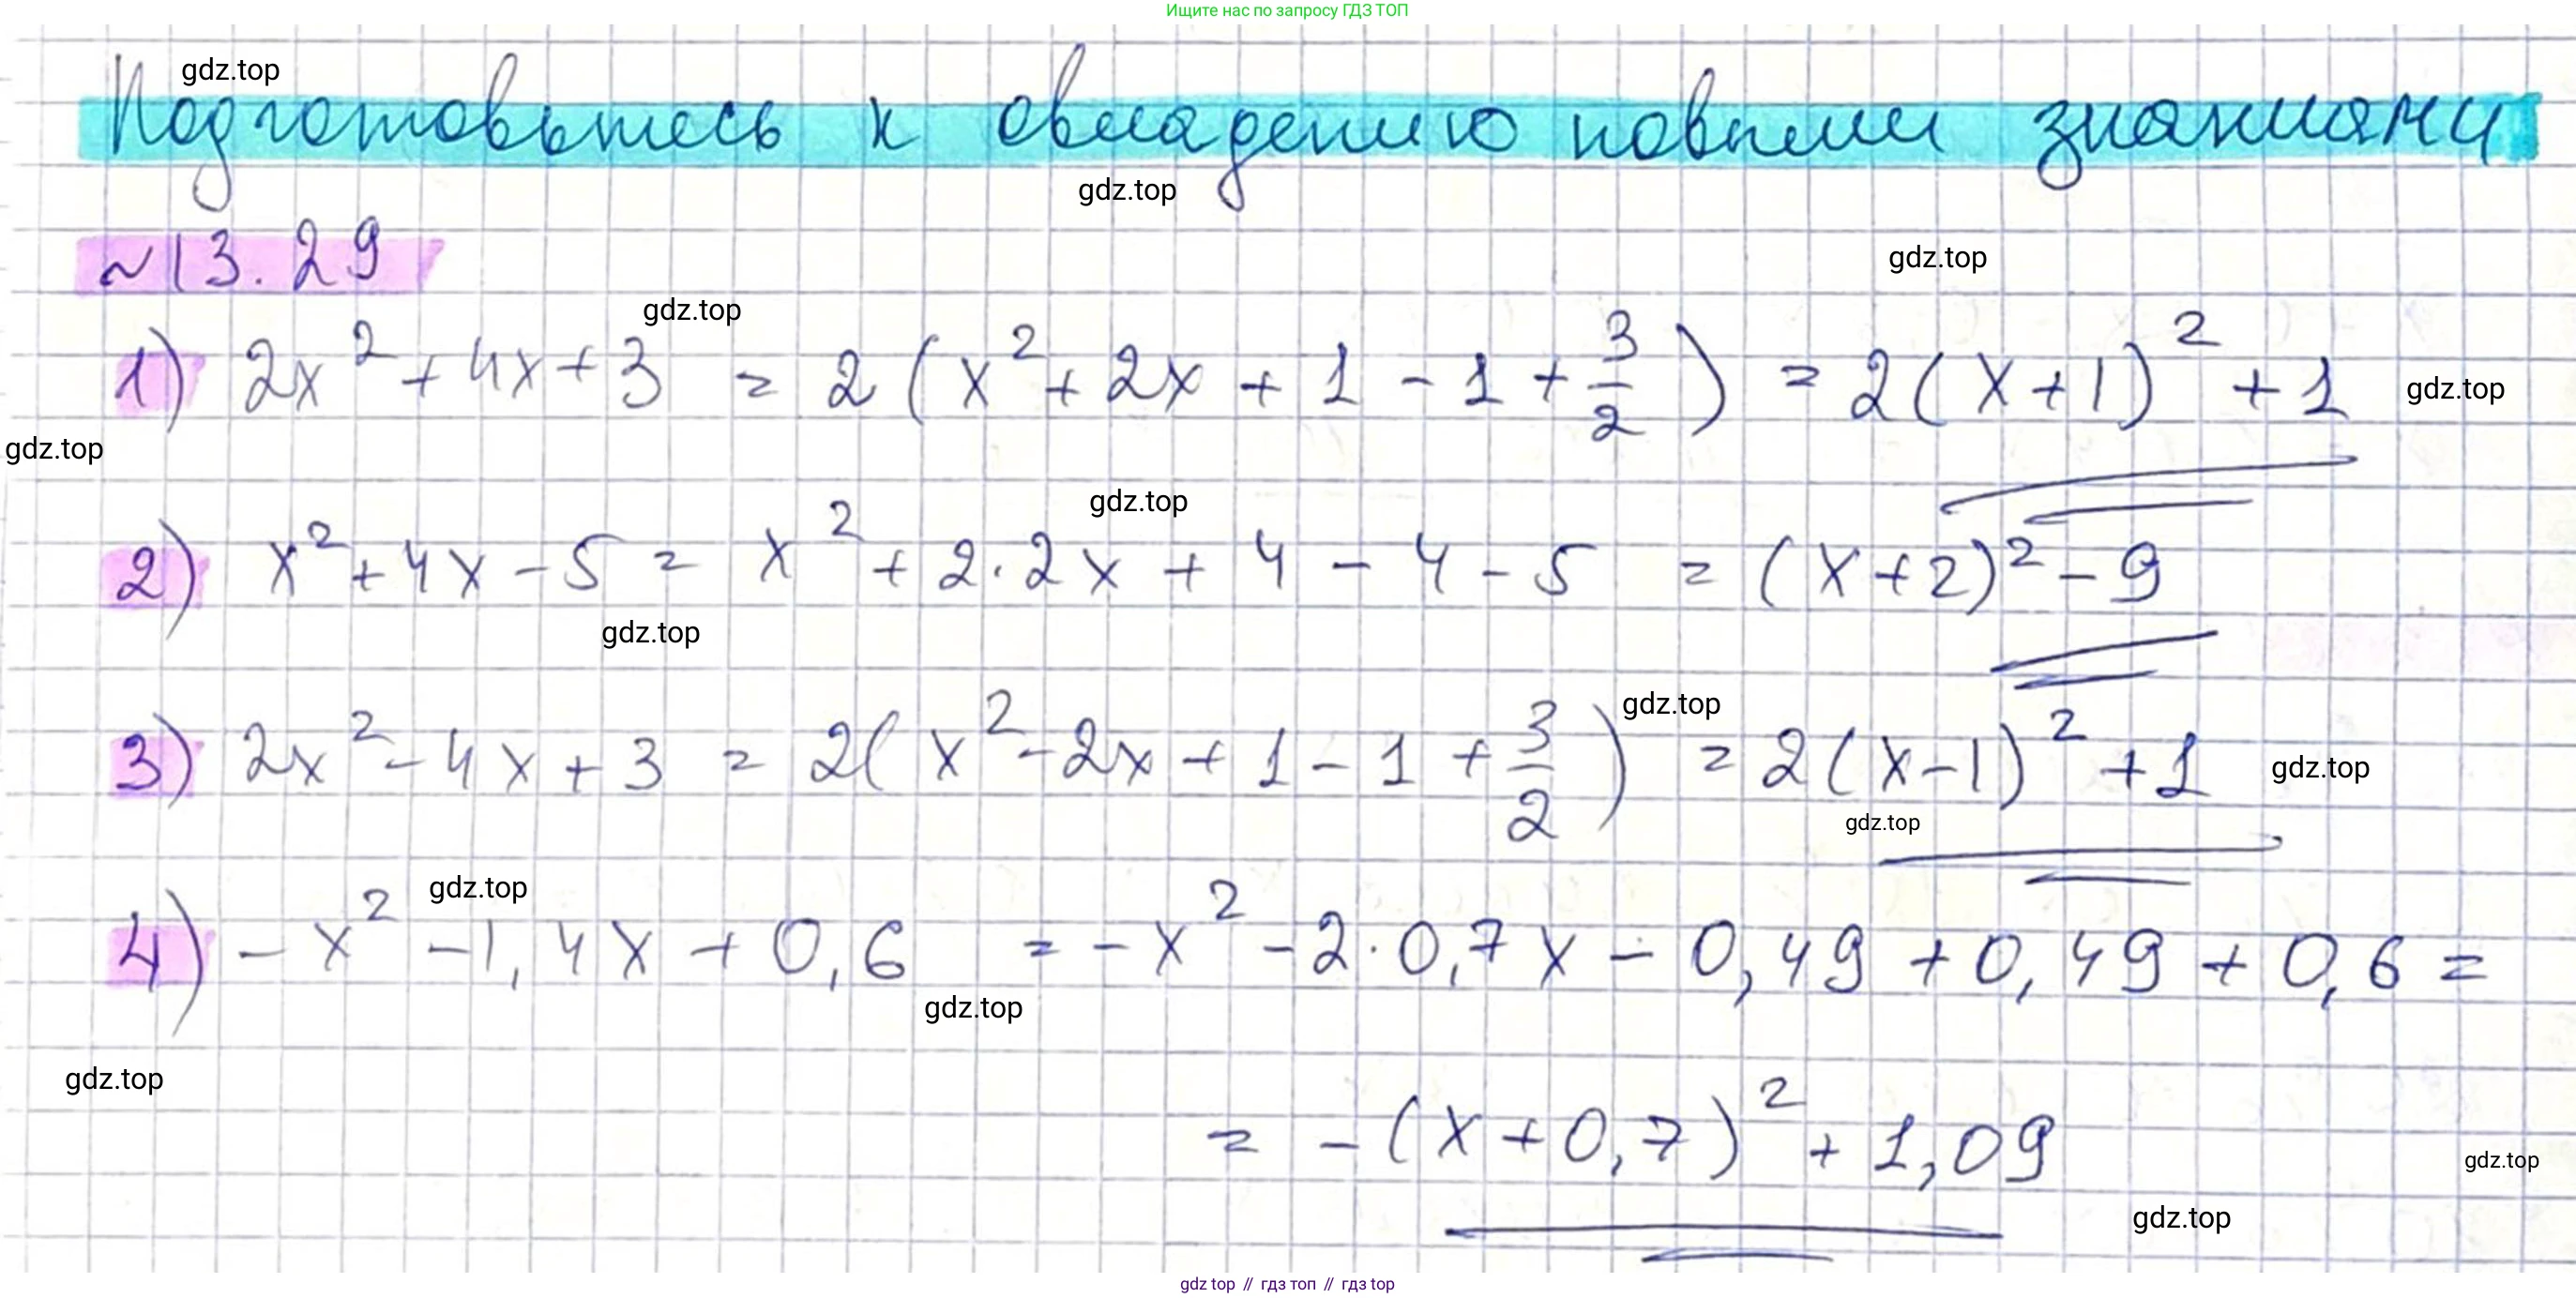 Ищите нас по запросу ГДЗ ТОП
gdz.top
Подготовьтесь к овладению новыми знаниями
gdz.top
№13.29
gdz.top
gdz.top
1) 2x² + 4x + 3 = 2(x² + 2x + 1 - 1 + 3/2) = 2(x+1)² + 1
gdz.top
gdz.top
gdz.top
2) x² + 4x - 5 = x² + 2·2x + 4 - 4 - 5 = (x+2)² - 9
gdz.top
gdz.top
3) 2x² - 4x + 3 = 2(x² - 2x + 1 - 1 + 3/2) = 2(x-1)² + 1
gdz.top
gdz.top
gdz.top
4) -x² - 1,4x + 0,6 = -x² - 2·0,7x - 0,49 + 0,49 + 0,6 =
gdz.top
gdz.top
= -(x+0,7)² + 1,09
gdz.top
gdz.top
gdz top // гдз топ // гдз top